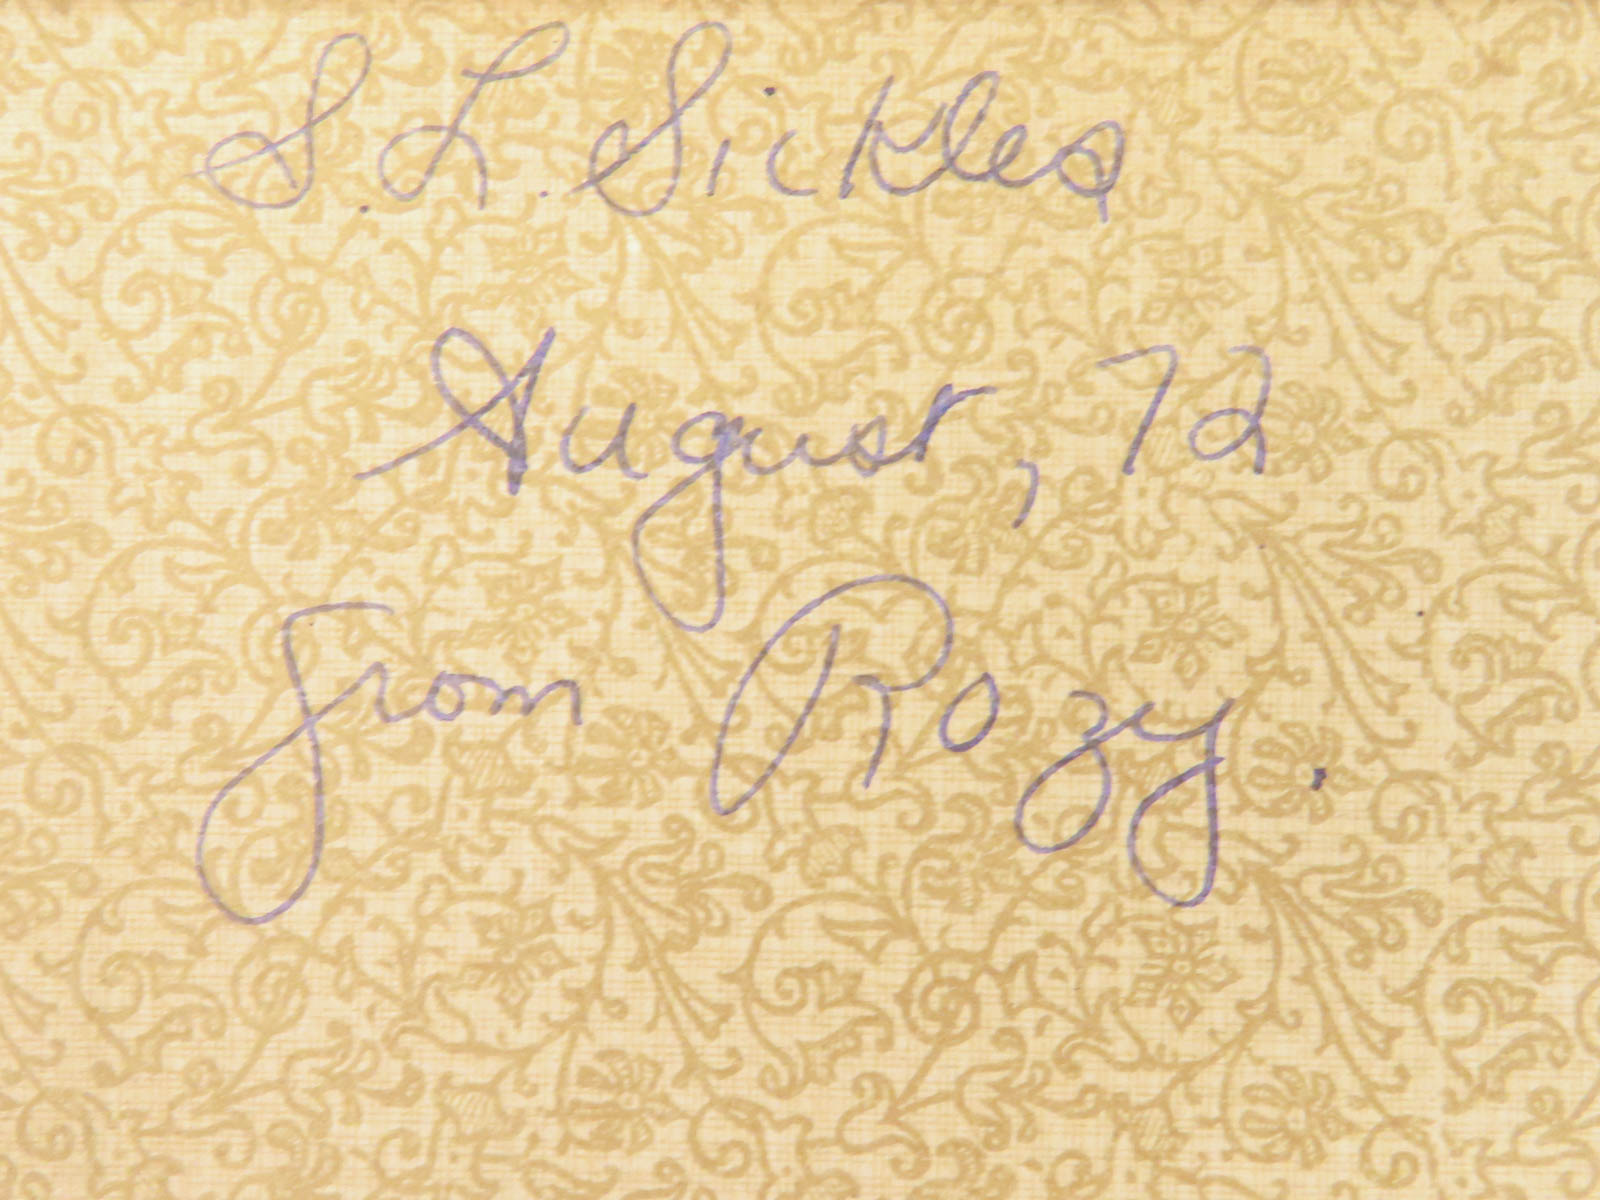 S. L. Sickles
August, 72
from Rozy.